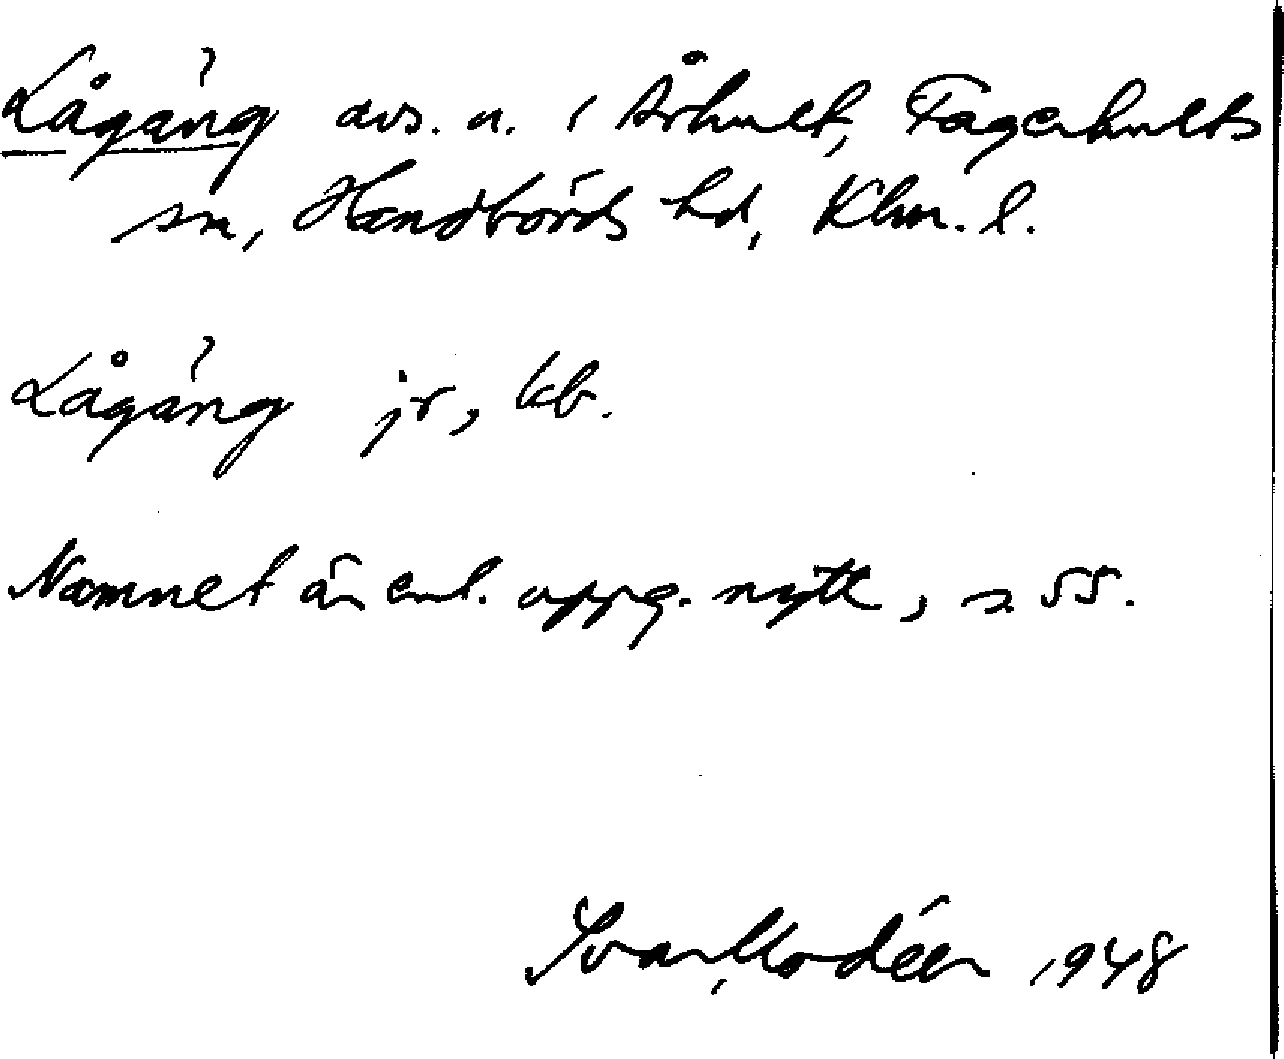 Lågäng avs. u. i Århult, Fagerhults
sn, Handbörds hd, Klm. l.
Lågäng jr, kb.
Namnet är enl. uppg. nytt, s. 55.
Ivar Modéer 1948